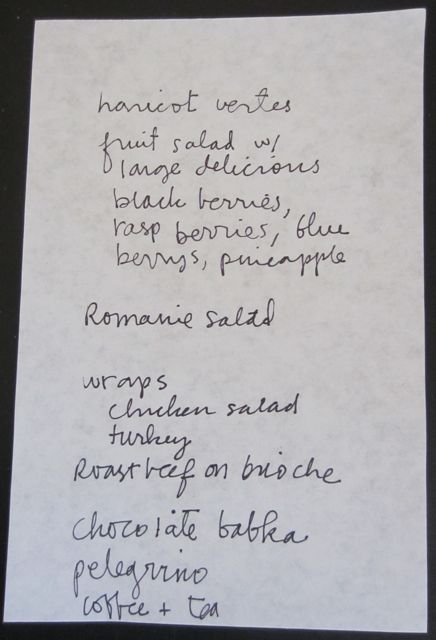 haricot vertes
fruit salad w/
large delicious
black berries,
rasp berries, blue
berrys, pineapple
Romanie salad
wraps
chicken salad
turkey
Roast beef on brioche
chocolate babka
pelegrino
coffee + tea